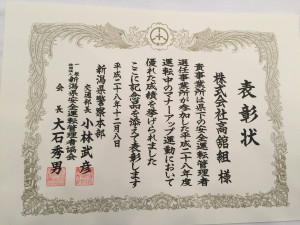 表彰状
株式会社高舘組 様
貴事業所は県下の安全運転管理者
選任事業所が参加した平成二十八年度
運転中のマナーアップ運動において
優れた成績を挙げられました
ここに記念品を添えて表彰します
平成二十八年十二月八日
新潟県警察本部
交通部長 小林武彦
一般社団法人 新潟県安全運転管理者協会
会長 大石秀男